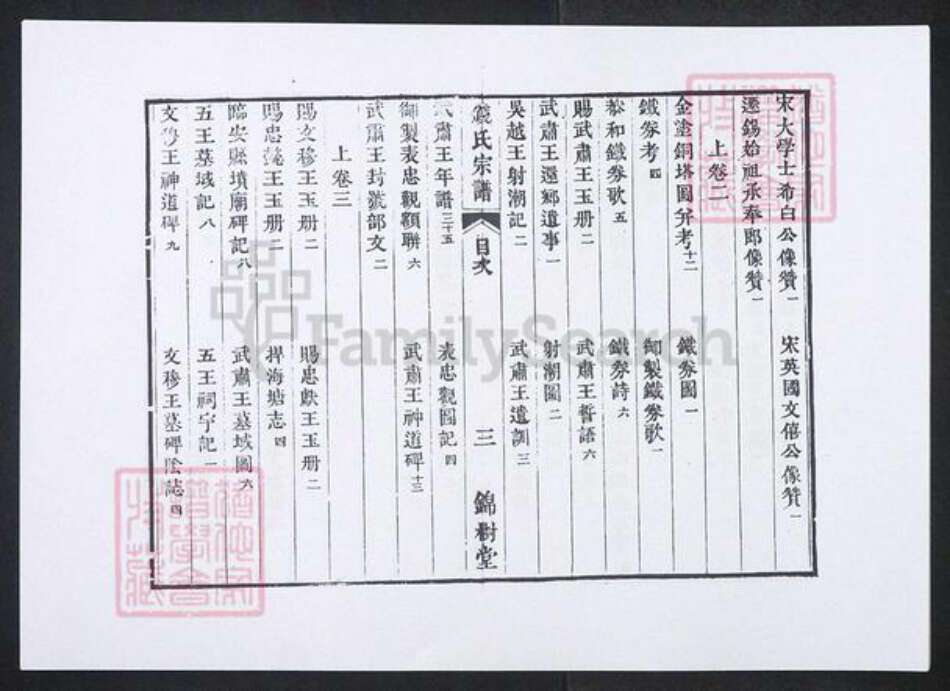 宋大學士希白公像贊一 宋英國文僖公像贊一
遷錫始祖承奉郎像贊一
上卷二
金塗銅塔圖并考十二 鐵券圖一
鐵券考四 御製鐵券歌一
恭和鐵券歌五 鐵券詩六
賜武肅王玉册二 武肅王誓語六
武肅王還鄉遺事一 射潮圖二
吳越王射潮記二 武肅王遺訓三
錢氏宗譜 目次 三 錦樹堂
武肅王年譜三十五 表忠觀圖記四
御製表忠觀額聯六 武肅王神道碑十三
武肅王封號部文二
上卷三
賜文穆王玉册二 賜忠獻王玉册二
賜忠懿王玉册二 捍海塘志四
臨安縣墳廟碑記八 武肅王墓域圖六
五王墓域記八 五王祠宇記一
文穆王神道碑九 文穆王墓碑陰誌四
FamilySearch